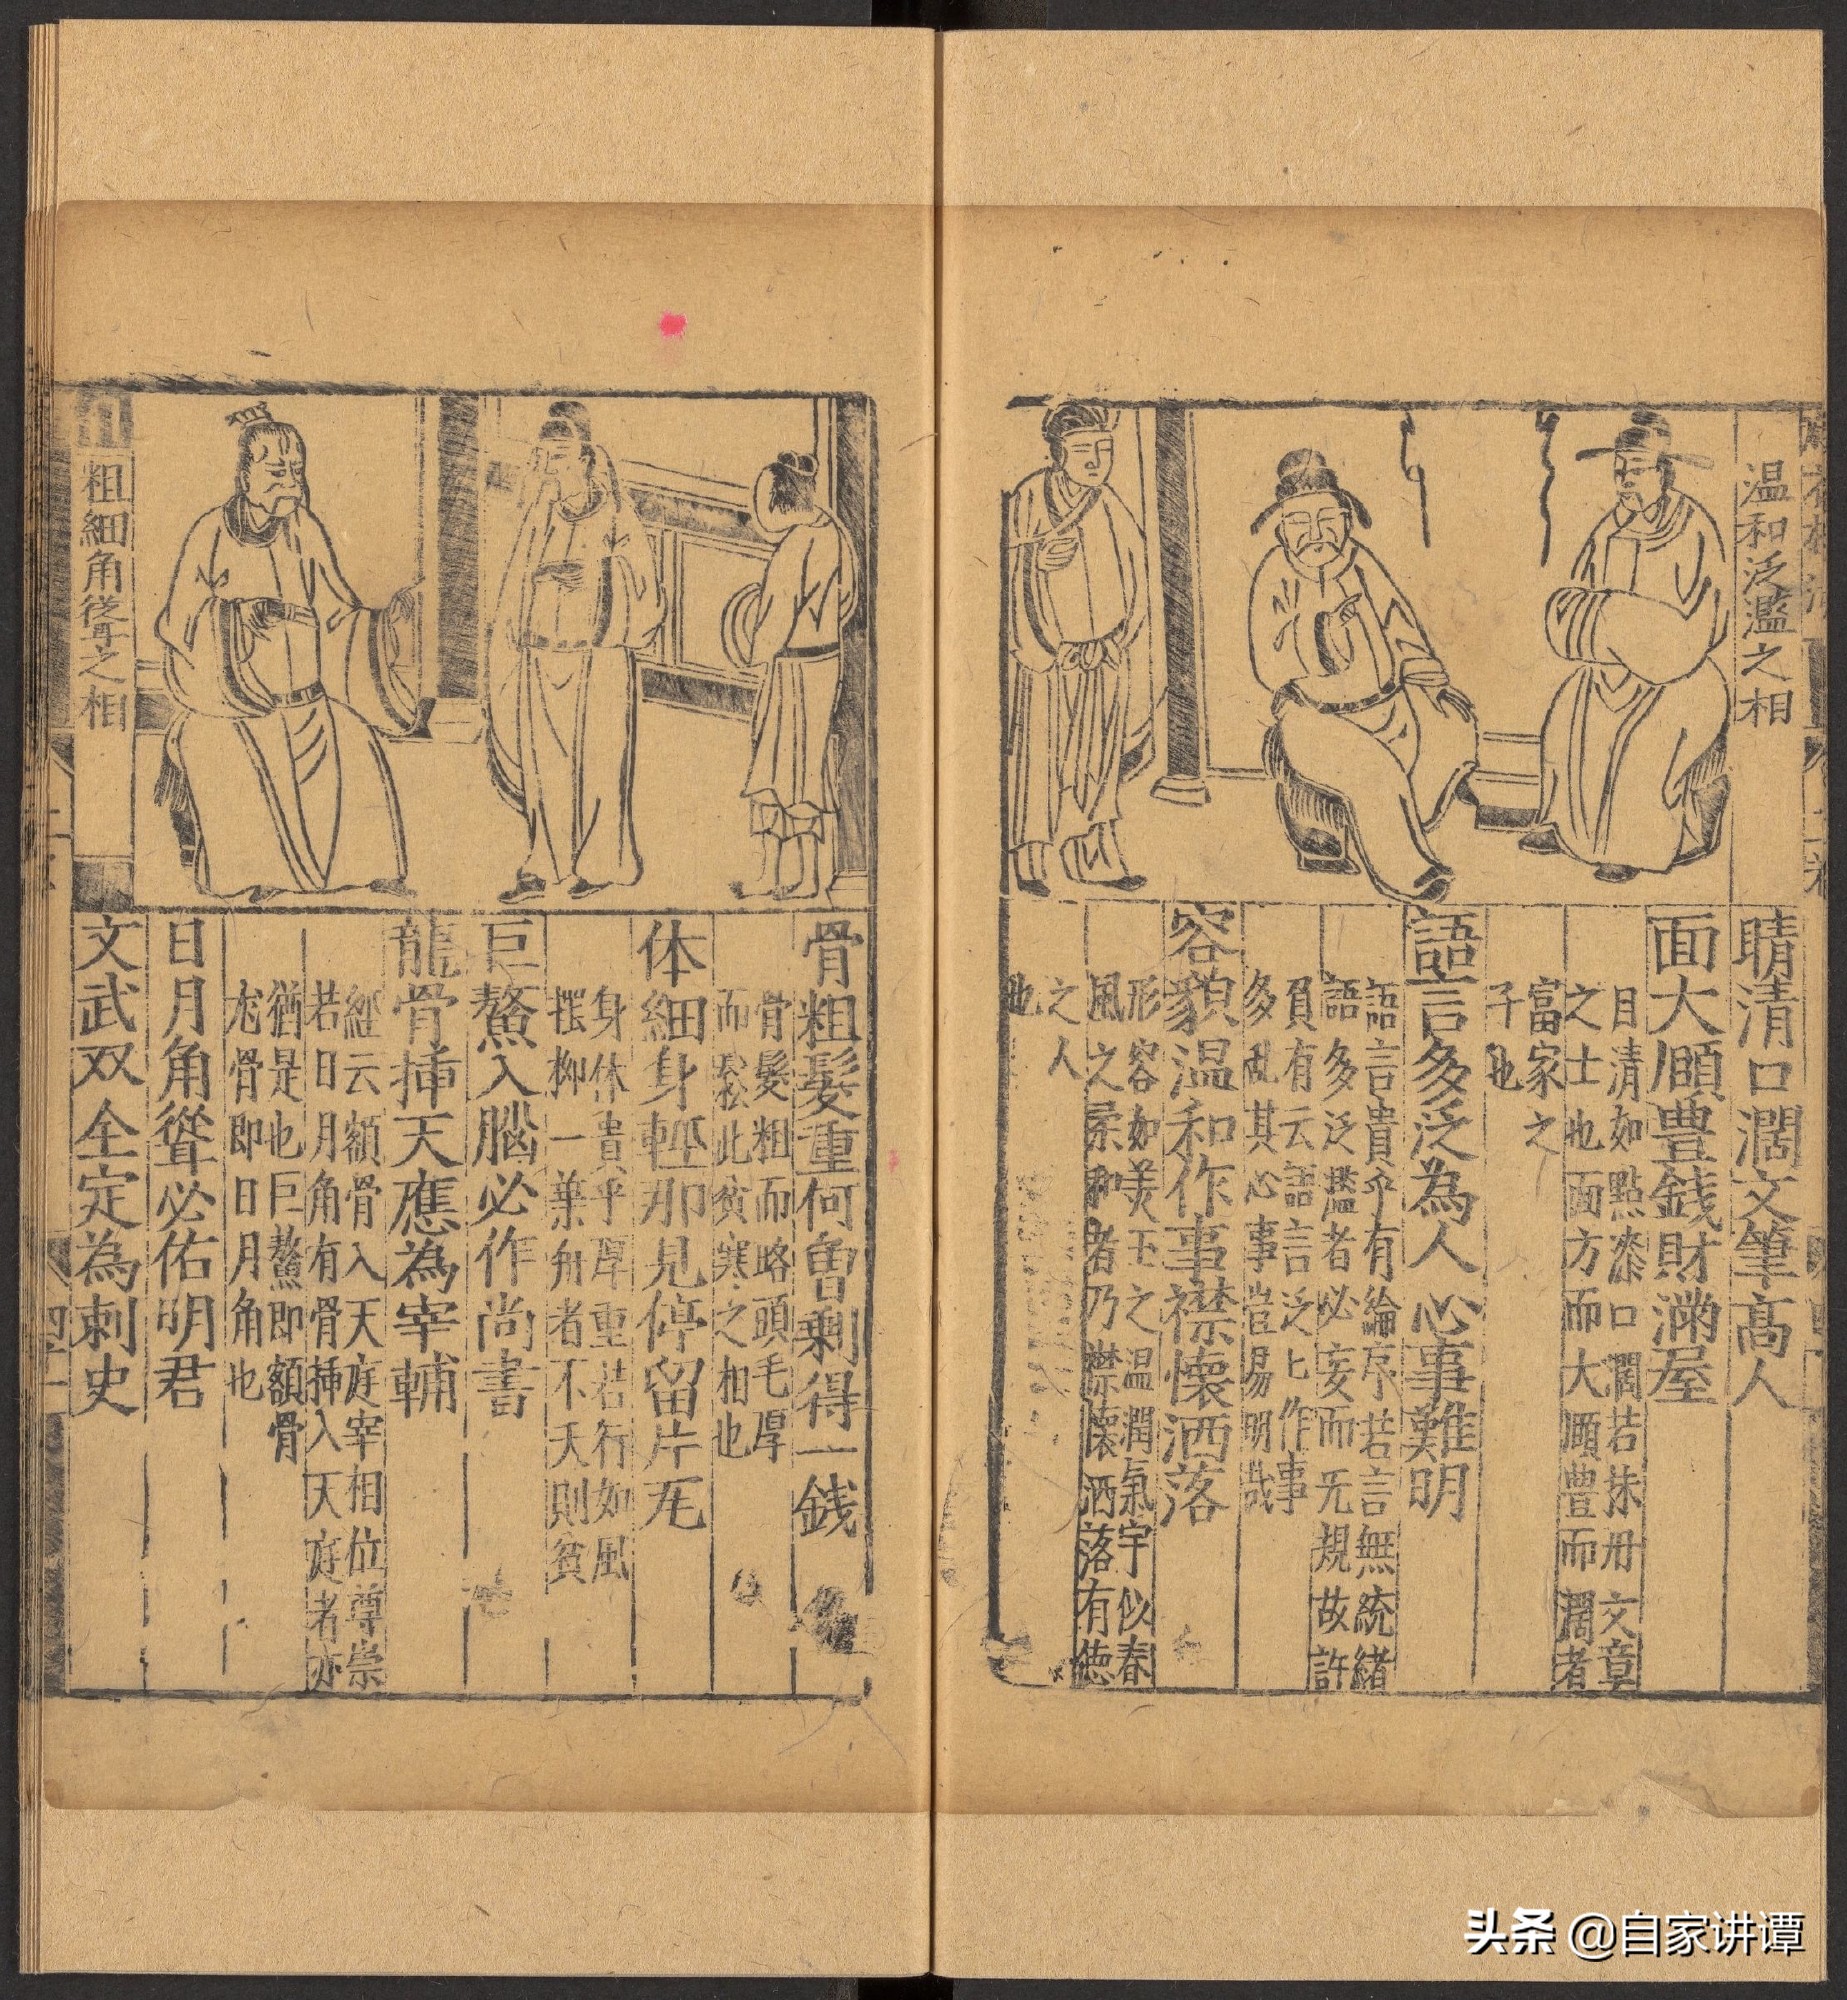 温和泛濫之相
睛清口濶文筆高人
面大頤豊錢財滿屋
目清如點漆口濶若抹丹文章
之士也面方而大頤豊而濶者
富家之
子也
語言多泛為人心事難明
語言貴乎有綸序若言無統緒
語多泛濫者必妄而无規故許
負有云語言泛上作事
多乱其心事豈易明哉
容貌温和作事襟懷洒落
形容如美玉之温潤氣宇似春
風之景和者乃襟懷洒落有徳
之人
也
骨粗髮重何曾剩得一錢
骨髮粗而略頭毛厚
而鬆此貧寒之相也
体細身軽那見停留片瓦
身体貴乎厚重若行如風
摆柳一葉舟者不夭則貧
巨鰲入腦必作尚書
龍骨揷天應為宰輔
經云額骨入天庭宰相位尊崇
若日月角有骨揷入天庭者亦
猶是也巨鰲即額骨
龙骨即日月角也
日月角聳必佑明君
文武双全定為刺史
粗細角聳之相
头条 @自家讲谭